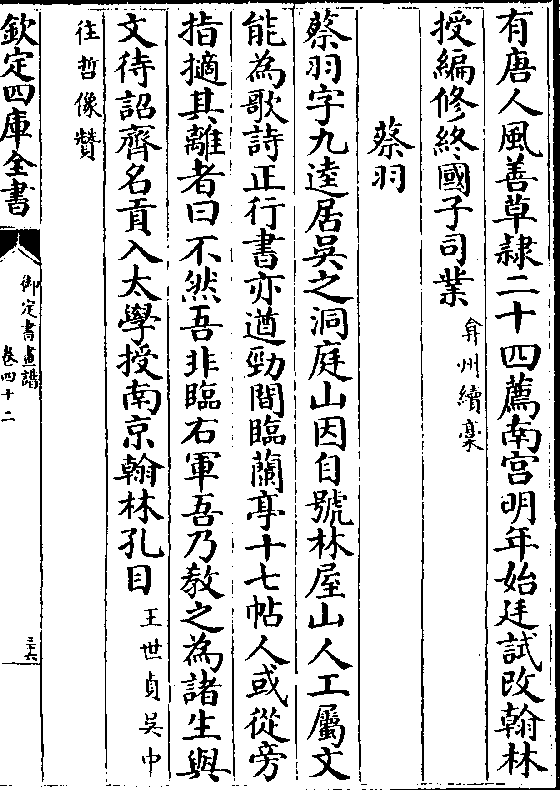 有唐人風善草隸二十四薦南宫明年始廷試改翰林
授編修終國子司業弇州續稾
蔡羽
蔡羽字九逵居吴之洞庭山因自號林屋山人工屬文
能為歌詩正行書亦遒勁間臨蘭亭十七帖人或從旁
指擿其離者曰不然吾非臨右軍吾乃教之為諸生與
文待詔齊名貢入太學授南京翰林孔目王世貞吴中
往哲像賛
欽定四庫全書
御定書畫譜
卷四十二
三十六